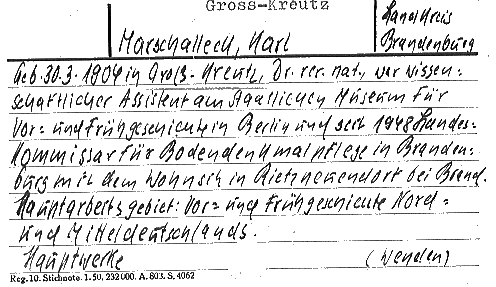 Gross-Kreutz
Marschalleck, Karl
Landkreis
Brandenburg
Geb. 30.3.1904 in Groß-Kreutz, Dr. rer. nat., war wissen=
schaftlicher Assistent am Staatlichen Museum für
Vor= und Frühgeschichte in Berlin und seit 1948 Landes-
Kommissar für Bodendenkmalpflege in Branden=
burg mit dem Wohnsitz in Rietzneuendorf bei Brand.
Hauptarbeitsgebiet: Vor= und Frühgeschichte Nord=
und Mitteldeutschlands.
Hauptwerke (Wenden)
Reg. 10. Stichnote. 1.50. 232000. A. 803. S. 4062